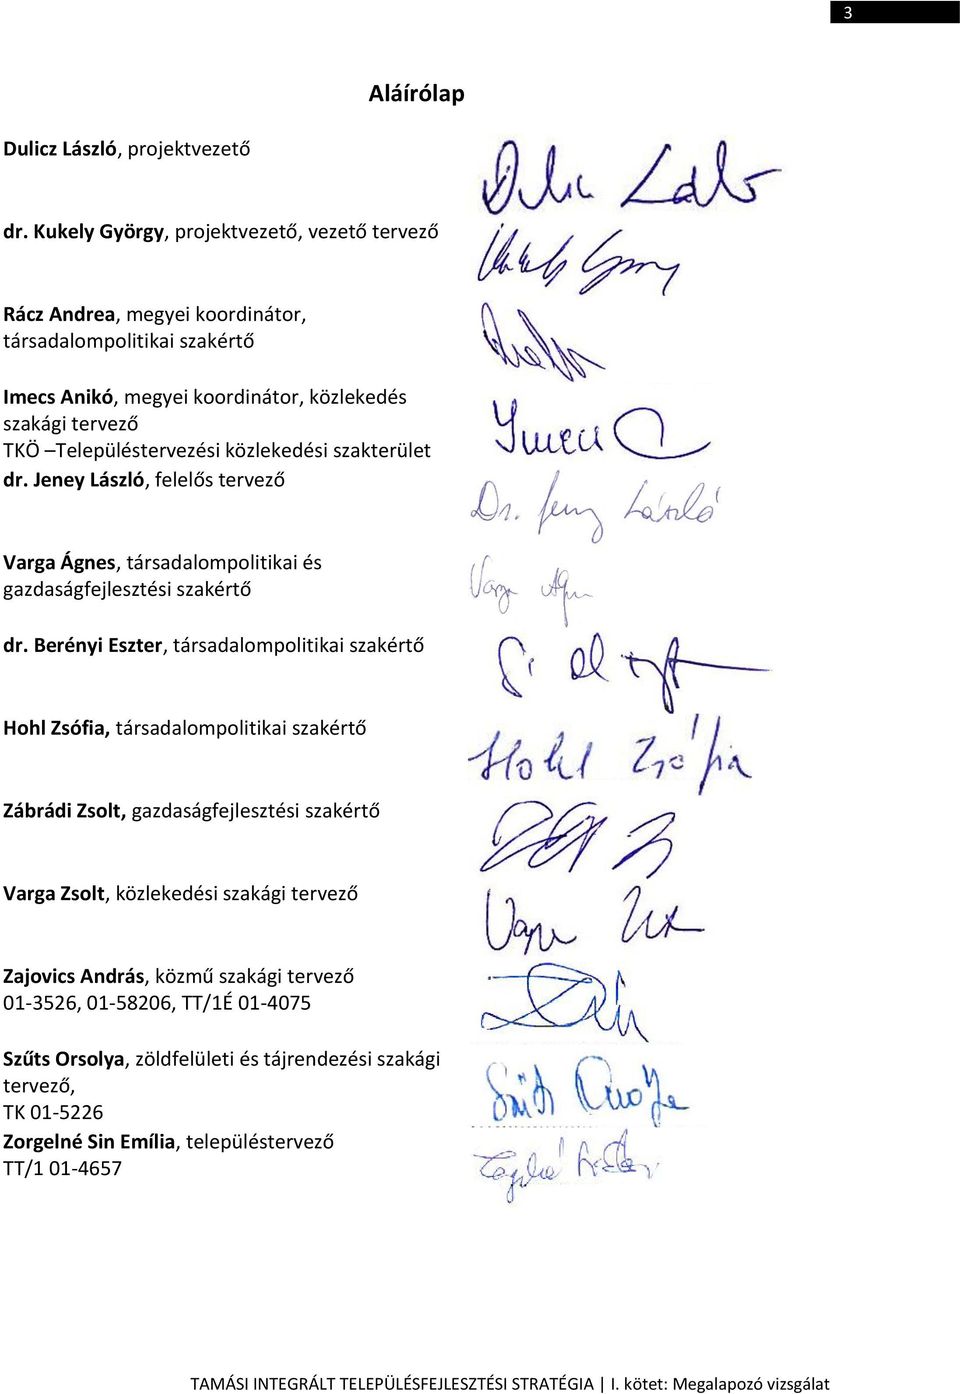 3
Aláírólap
Dulicz László, projektvezető
Dulicz László
dr. Kukely György, projektvezető, vezető tervező
Rácz Andrea, megyei koordinátor,
társadalompolitikai szakértő
Imecs Anikó, megyei koordinátor, közlekedés
szakági tervező
TKÖ –Településtervezési közlekedési szakterület
Imecs
dr. Jeney László, felelős tervező
Dr. Jeney László
Varga Ágnes, társadalompolitikai és
gazdaságfejlesztési szakértő
Varga Ágnes
dr. Berényi Eszter, társadalompolitikai szakértő
Hohl Zsófia, társadalompolitikai szakértő
Hohl Zsófia
Zábrádi Zsolt, gazdaságfejlesztési szakértő
Varga Zsolt, közlekedési szakági tervező
Varga
Zajovics András, közmű szakági tervező
01-3526, 01-58206, TT/1É 01-4075
Szűts Orsolya, zöldfelületi és tájrendezési szakági
tervező,
TK 01-5226
Szűts Orsolya
Zorgelné Sin Emília, településtervező
TT/1 01-4657
TAMÁSI INTEGRÁLT TELEPÜLÉSFEJLESZTÉSI STRATÉGIA | I. kötet: Megalapozó vizsgálat